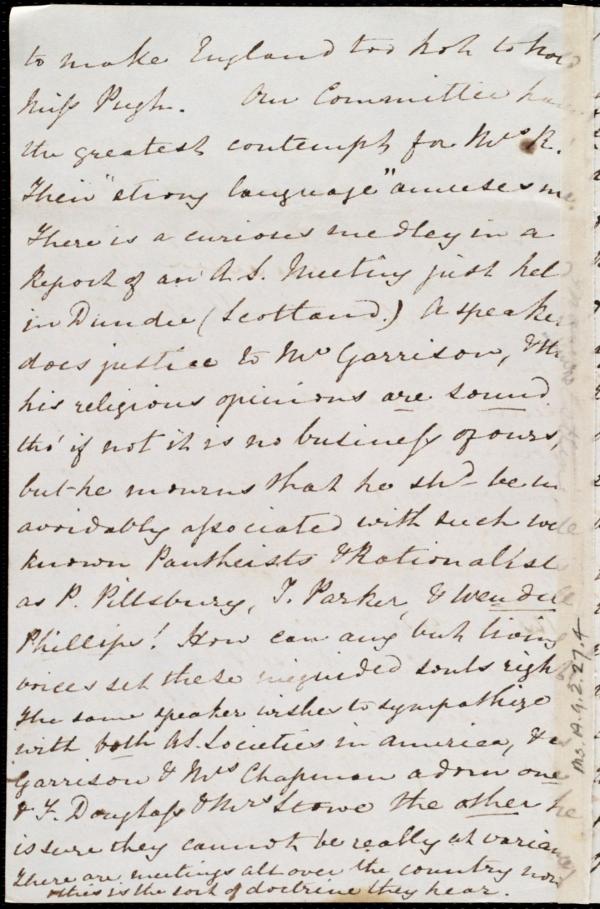 to make England too hot to hold
Miss Pugh. Our Committee have
the greatest contempt for Mrs R.
Their "strong language" amuses me.
There is a curious medley in a
Report of an A.S. Meeting just held
in Dundee (Scotland.) A speaker
does justice to Mr Garrison, & th
his religious opinions are sound
tho' if not it is no business of ours,
but he mourns that he shd be un
avoidably associated with such well
known Pantheists & Rationalists
as P. Pillsbury, T. Parker, & Wendell
Phillips! How can any but living
voices set these misguided souls right
The same speaker wishes to sympathize
with both AS. Societies in America, & as
Garrison & Mrs Chapman adorn one
& F. Douglass & Mrs Stowe the other he
is sure they cannot be really at variance
There are meetings all over the country now
& this is the sort of doctrine they hear.
Ms. A.9.2.27.4